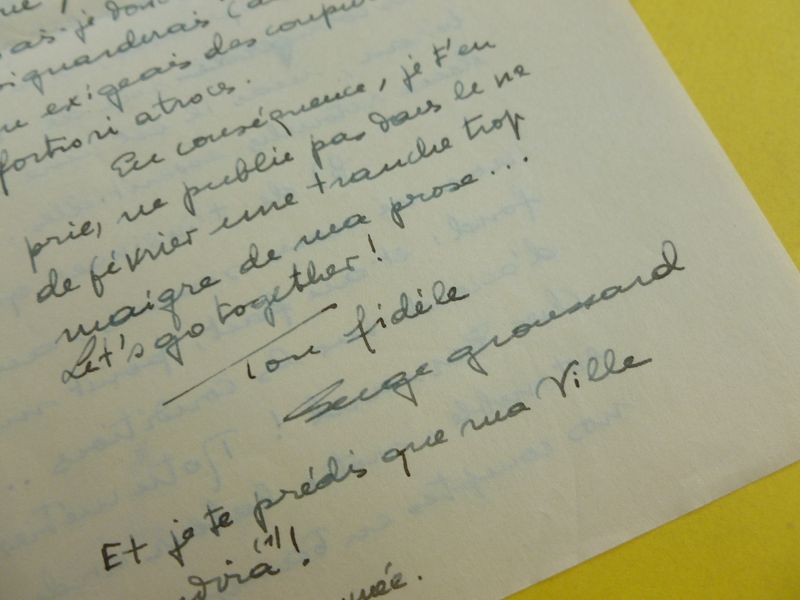 ais-je donc
siguarderais
exigeais des coupur
fortiori atroces.
En conséquence, je t'en
prie, ne publie pas dans le no
de février une tranche trop
maigre de ma prose...
Let's go together!
Ton fidèle
Serge Groussard
Et je te prédis que ma Ville
(1)!